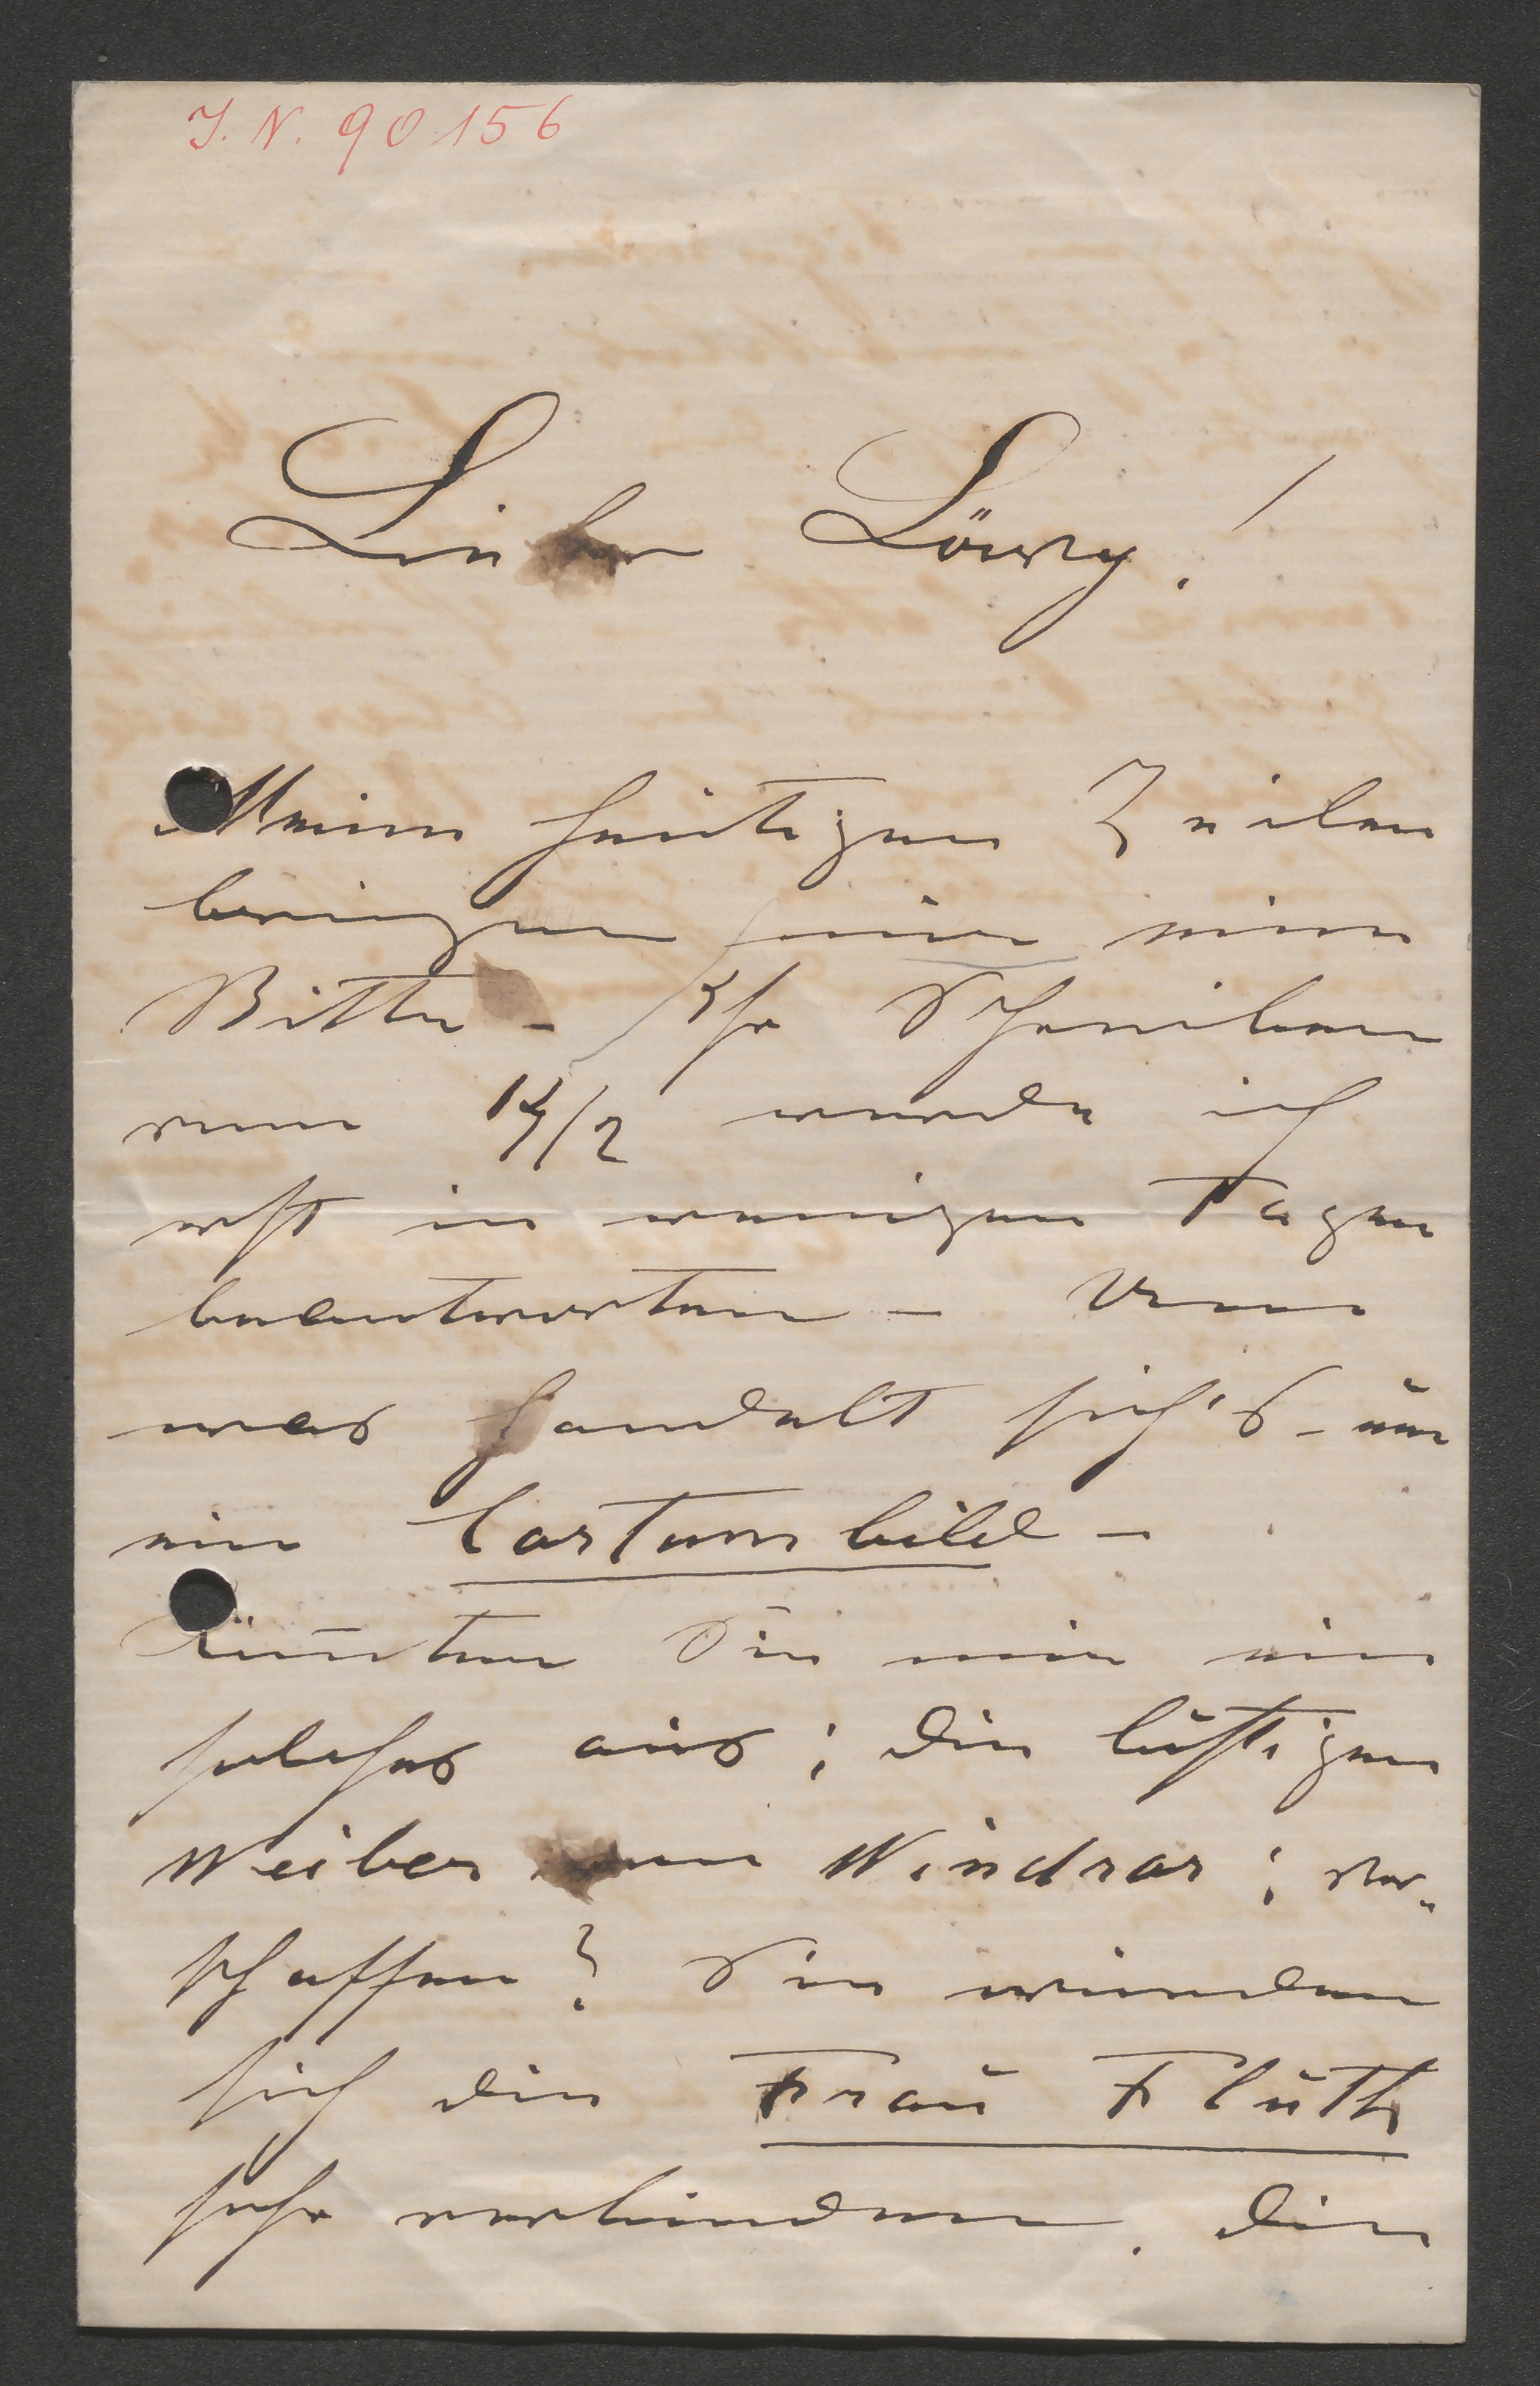 J. N. 90.156
Lieber Löwy!
Meine heutigen Zeilen
bringen eine
Bitte - Ihr Schreiben
vom 14/2 werde ich
erst in wenigen Tagen
beantworten - Um
was handelt sich's - um
ein Costumbild -
Könnten Sie mir ein
solches aus: die lustigen
Weiber von Windsor: ver-
schaffen? Sie würden
sich die Frau Fluth
sehr verbinden. Die